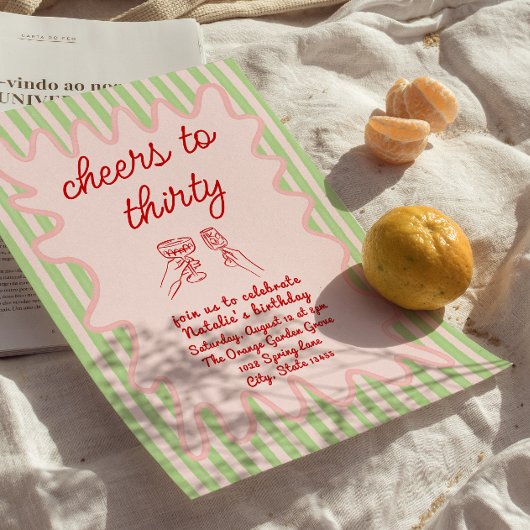 CARTA DO
-vindo ao no
UNIVER
cheers to
thirty
join us to celebrate
Natalie's birthday
Saturday, August 12 at 8pm
The Orange Garden Grove
1028 Spring Lane
City, State 13455